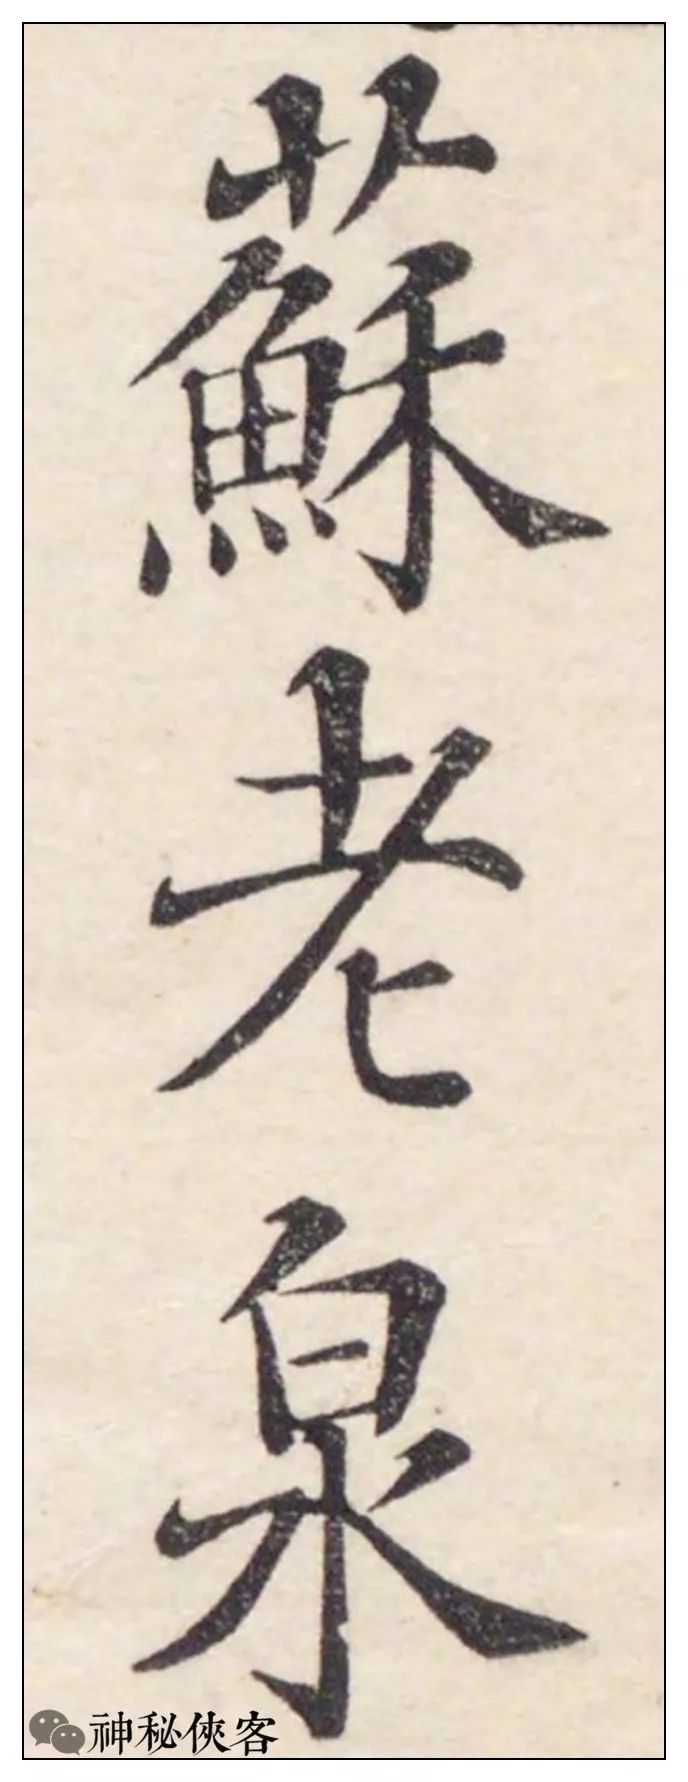 蘇老泉
神秘俠客